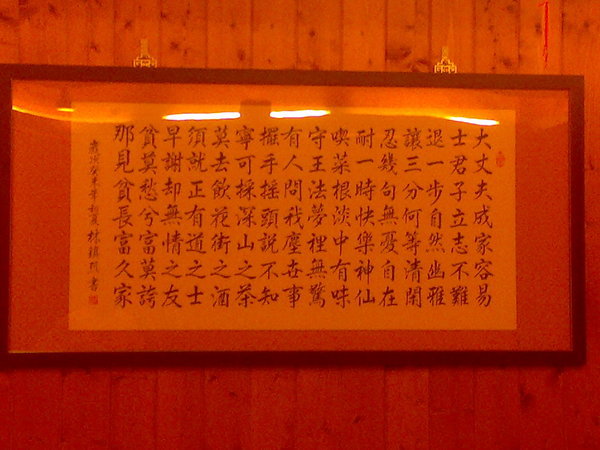 大丈夫成家容易
士君子立志不難
退一步自然幽雅
讓三分何等清閒
忍幾句無憂自在
耐一時快樂神仙
喫菜根淡中有味
守王法夢裡無驚
有人問我塵世事
擺手搖頭說不知
寧可採深山之茶
莫去飲花街之酒
須就正有道之士
早謝却無情之友
貧莫愁兮富莫誇
那見貧長富久家
歲次癸未年初夏 林鎮 書